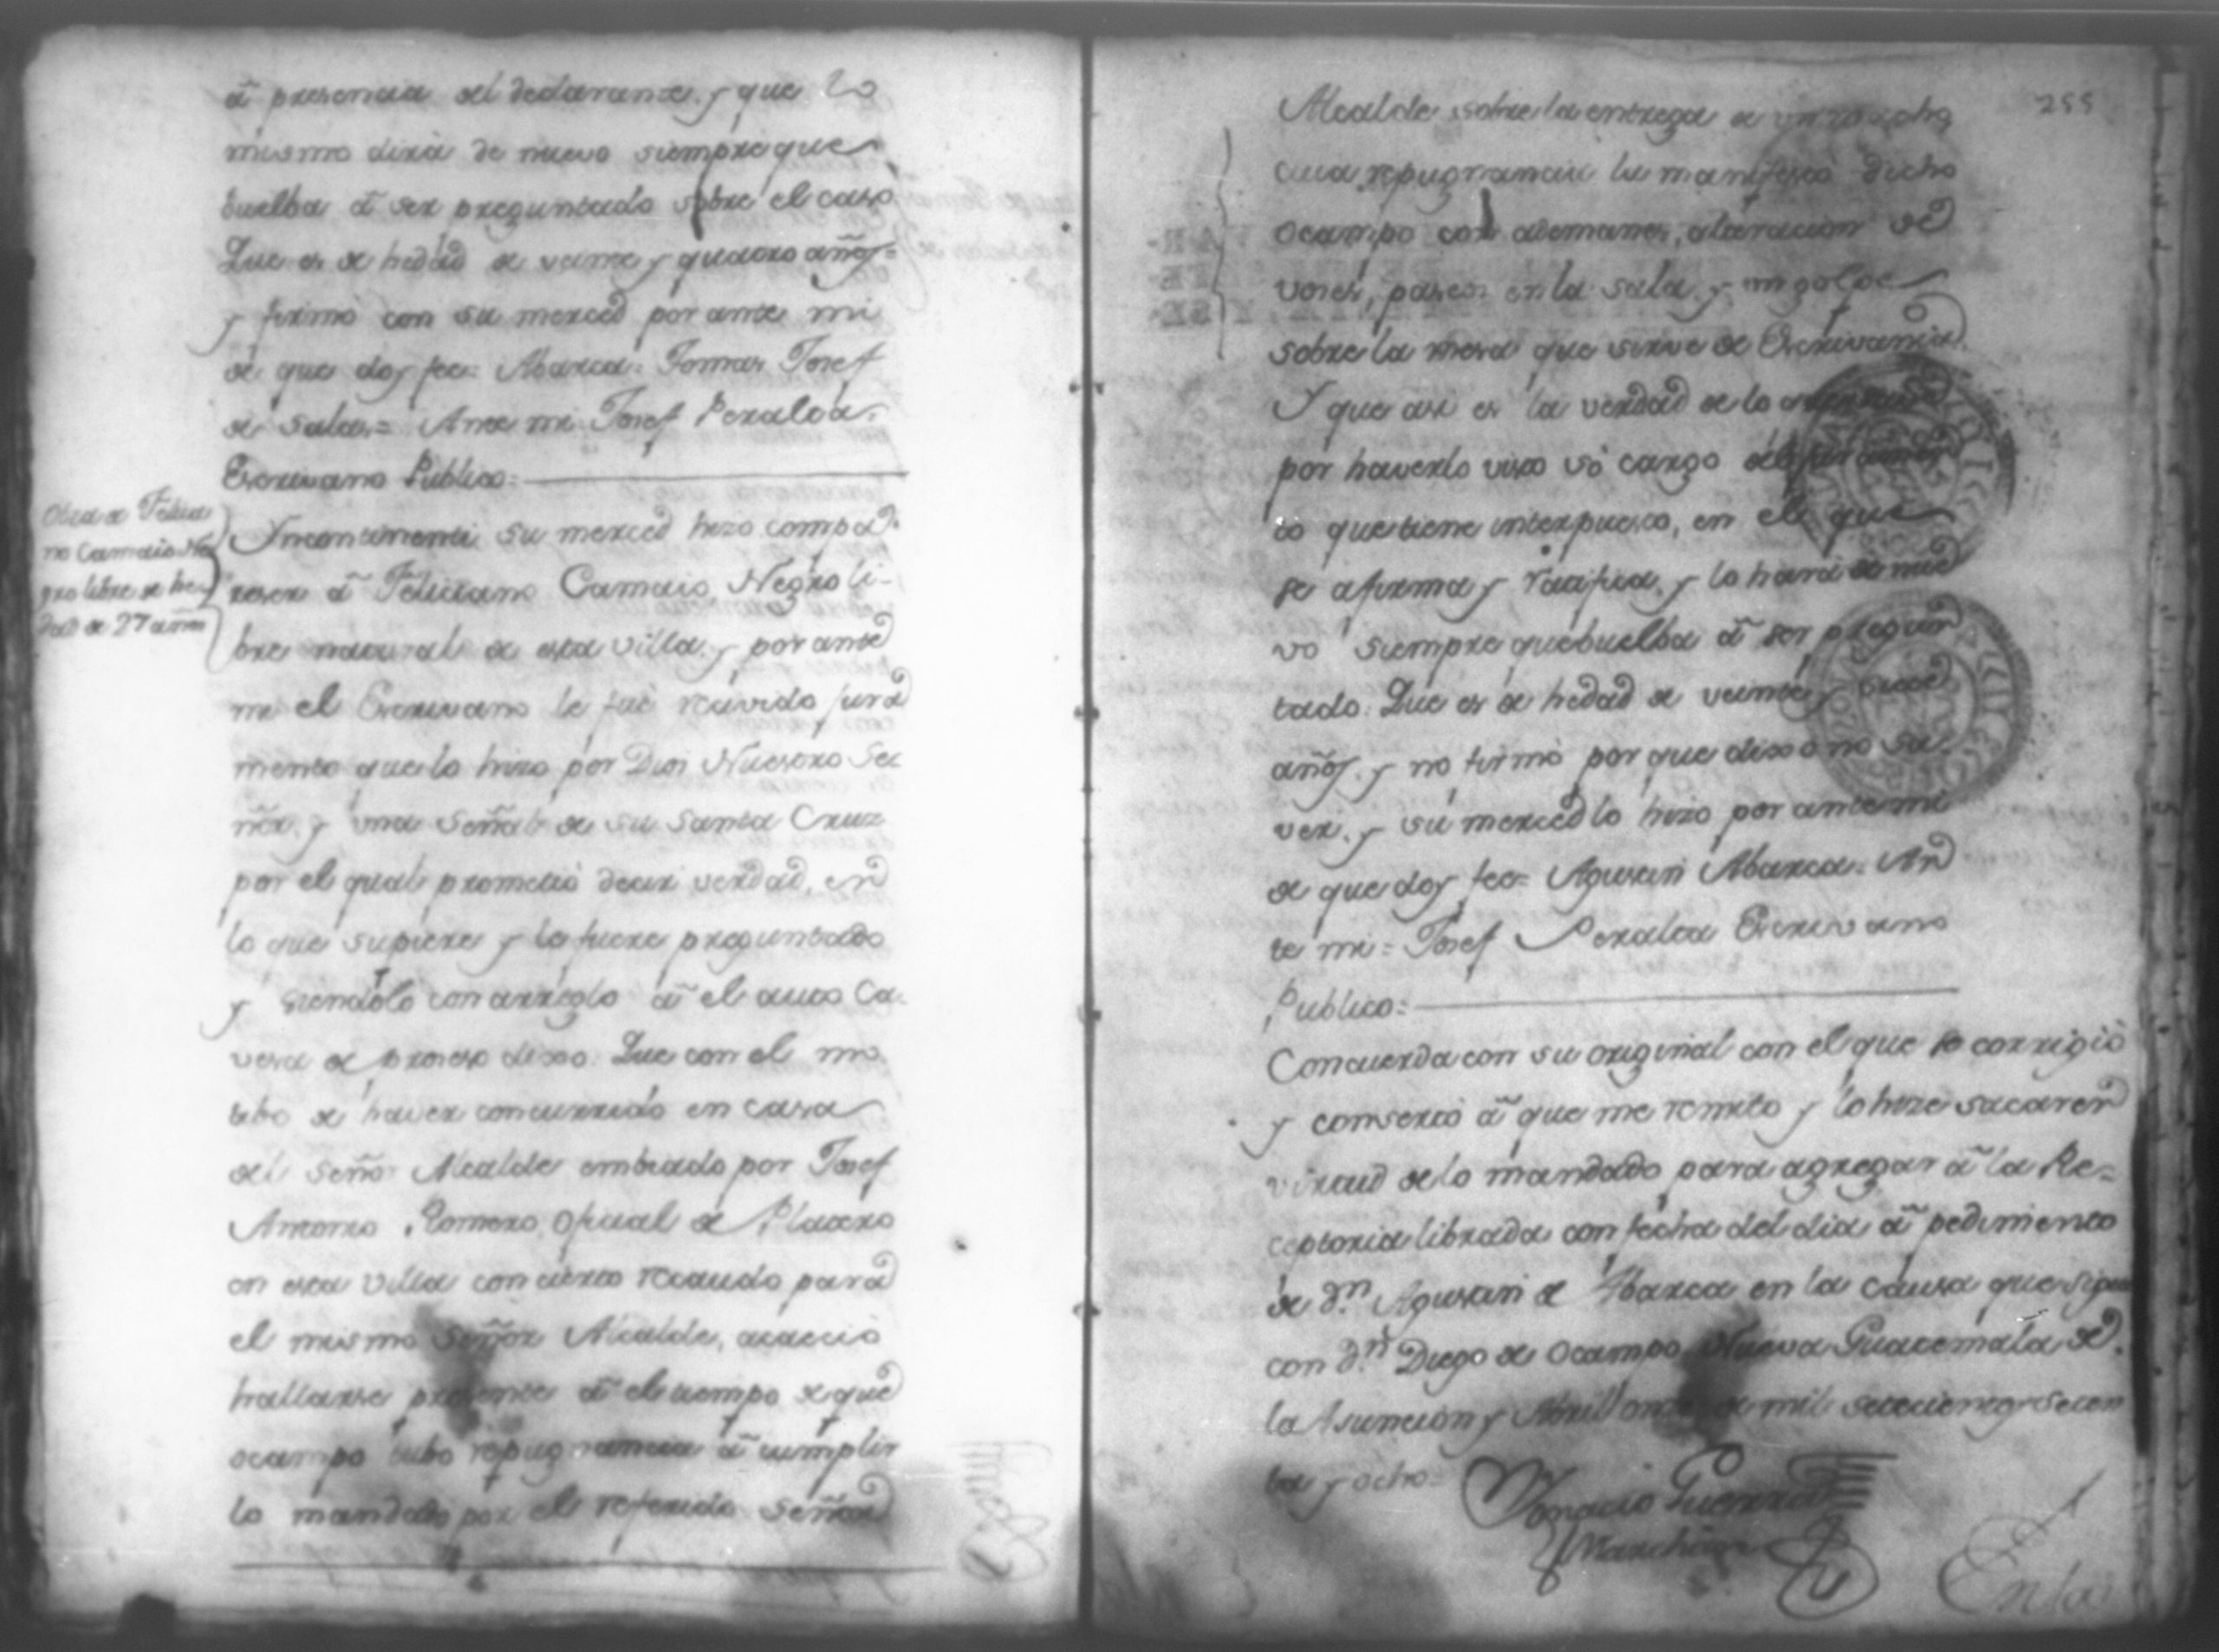 â presencia del declarante, y que lo
mismo dirà de nuevo siempre que
buelba â ser preguntado sobre el caso
Que es de hedad de veinte y quatro años=
y firmò con su merced por ante mi
de que doy fee= Abarca= Tomas Josef
de Salas= Ante mi Josef Peralta.
Escrivano Publico=
Otra de Felicia
no Camaio Ne
gro libre de he
dad de 27 años
Yncontinenti su merced hizo compa
recer â Feliciano Camaio, Negro li-
bre natural de esta villa, y por ante
mi el Escrivano le fue recivido jura
mento que lo hizo por Dios Nuestro Se
ñor, y una Señal de su Santa Cruz
por el qual prometiò decir verdad, en
lo que supiere y le fuere preguntado
y siendolo con arreglo â el auto Ca-
vesa de proceso dixo. Que con el mo
tibo de haver concurrido en casa
del Señor Alcalde embiado por Josef
Antonio Romero, Oficial de Platero
en esta villa con cierto recaudo para
el mismo Señor Alcalde, acaeciò
hallarse presente â el tiempo de que
Ocampo tubo repugnancia â cumplir
lo mandado por el referido Señor
255
Alcalde sobre la entrega de un macho,
cuia repugnancia la manifestò dicho
Ocampo con ademanes, alteracion de
voces, paseos en la sala, y un golpe
sobre la mesa que sirve de Escrivania.
Y que asi es la verdad de lo
por haverlo visto vò cargo del juramen
to que tiene interpuesto, en el que
se afirma y ratifica, y lo harà de nue
vo siempre que buelba â ser pregun
tado. Que es de hedad de veinte y siete
años, y no firmò por que dixo no sa-
ver, y su merced lo hizo por ante mi
de que doy fee= Agustin Abarca= An
te mi= Josef Peralta Escrivano
Publico=
Concuerda con su original con el que se corrigiò
y consertò â que me remito y lo hize sacar en
virtud de lo mandado para agregar â la Re=
ceptoria librada con fecha del dia â pedimento
de Dn. Agustin de Abarca en la causa que sigue
con Dn. Diego de Ocampo Nueva Guatemala de
la Asuncion y Abril once de mil setecientos seten
ta y ocho=
Ygnacio Guerra
Marchan